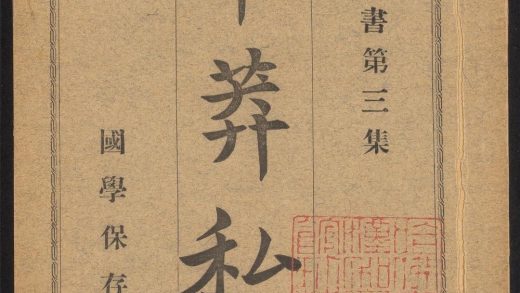 書第三集
莽私
國學保存